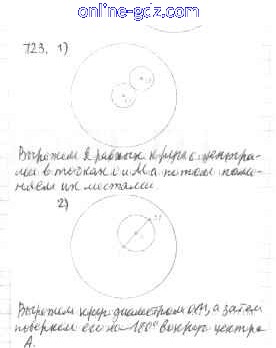 online-gdz.com
723. 1)
Вырежем 2 равных круга с центра-
ми в точках O и M а потом поме-
няем их местами.
2)
Вырежем круг диаметром OM, а затем
повернем его на 180° вокруг центра
A.